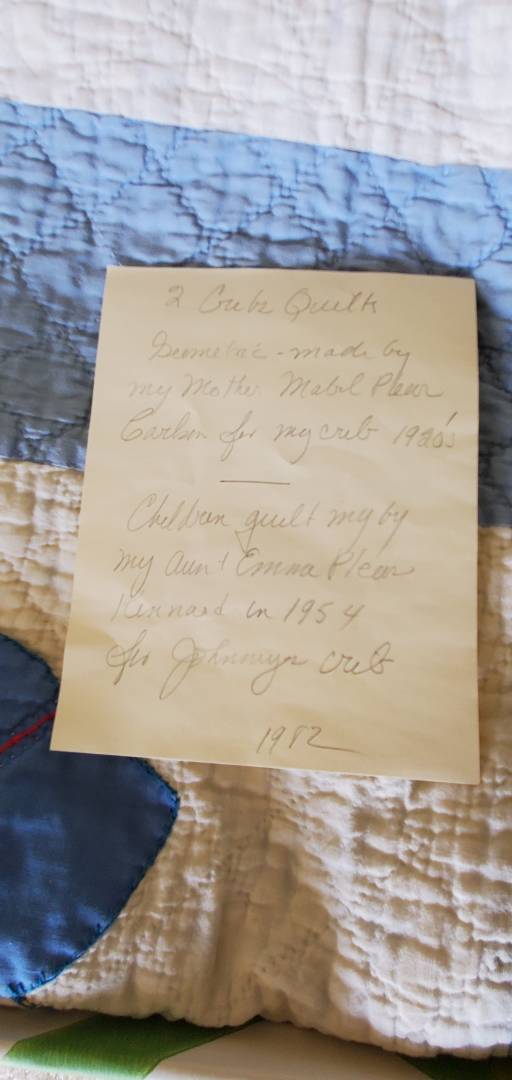 2 Cribs Quilts
Geometric - made by
my Mother Mabel Plear
Carlson for my crib 1920's
Children quilt my by
my Aunt Emma Plear
Kennard in 1954
for Johnnys crib
1982